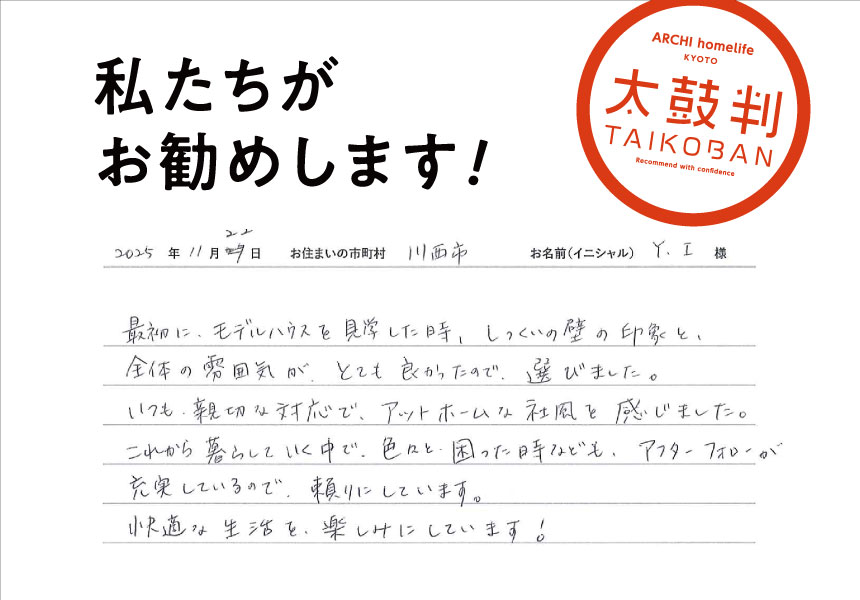 私たちが
お勧めします!
ARCHI homelife
KYOTO
太鼓判
TAIKOBAN
Recommend with confidence
22
2025 年 11 月 日 お住まいの市町村 川西市 お名前(イニシャル) Y. I 様
最初に、モデルハウスを見学した時、しっくいの壁の印象と、
全体の雰囲気が、とても良かったので、選びました。
いつも、親切な対応で、アットホームな社風を感じました。
これから暮らしていく中で、色々と、困った時なども、アフターフォローが
充実しているので、頼りにしています。
快適な生活を、楽しみにしています!